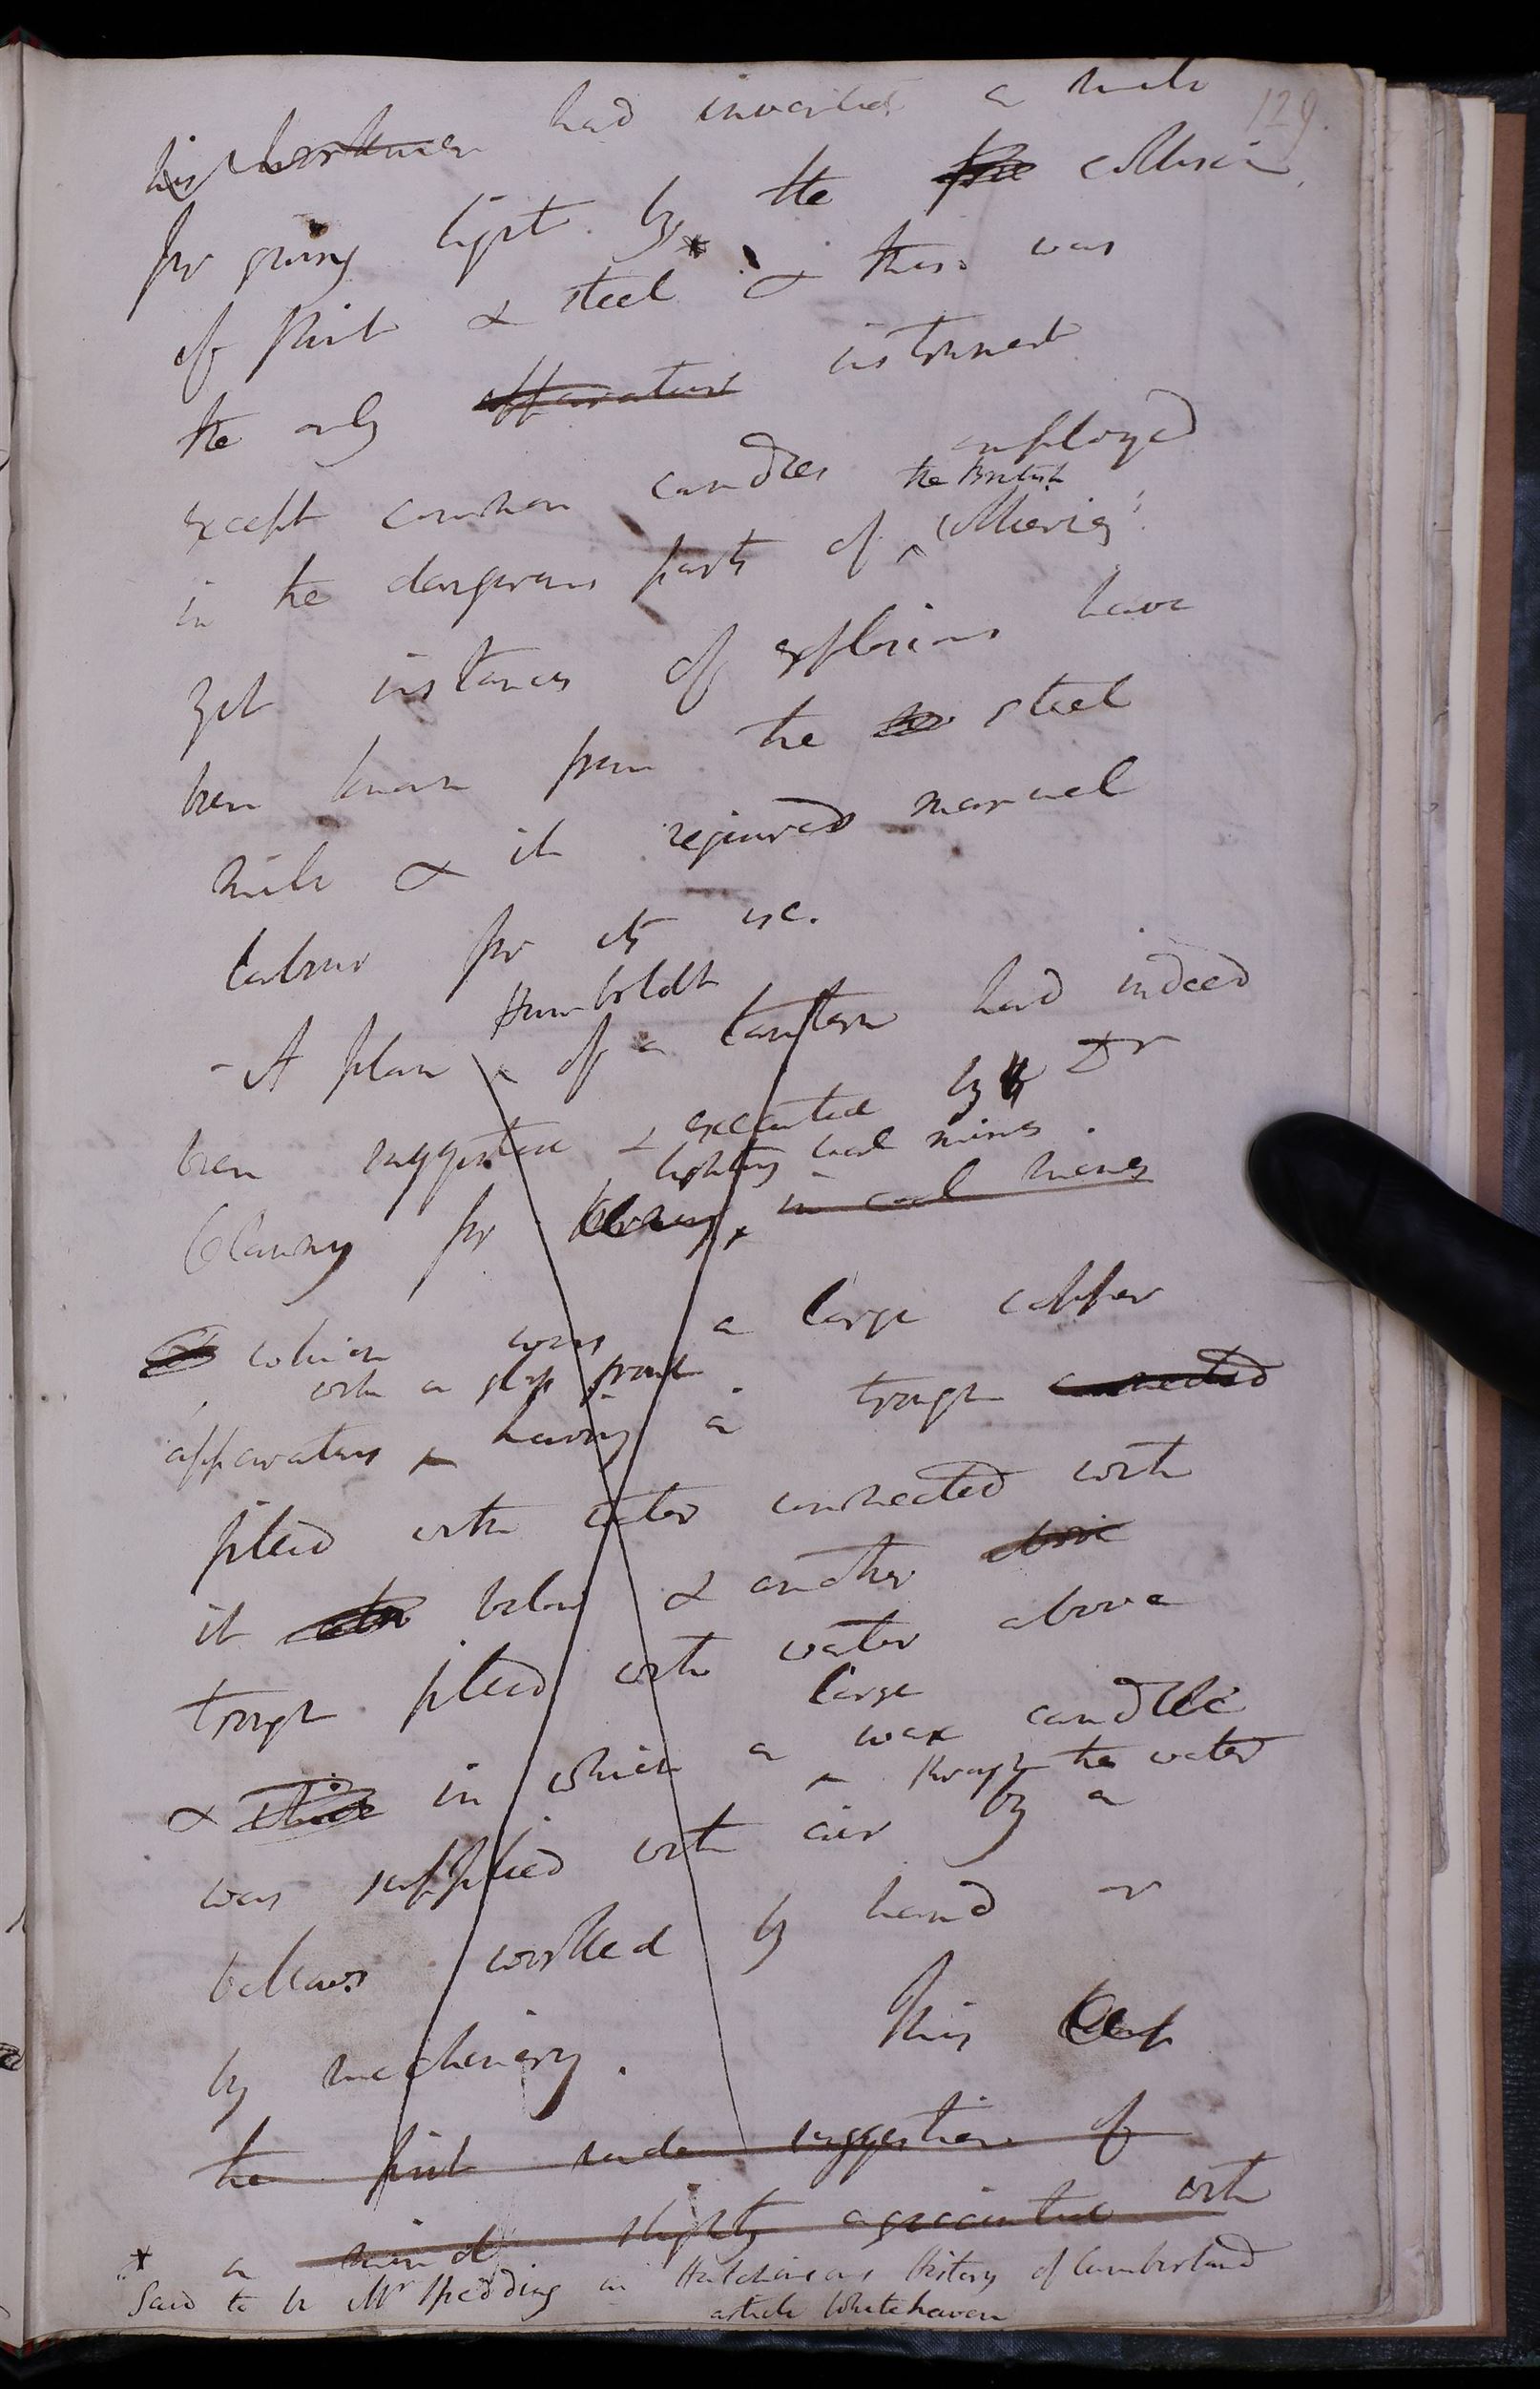 129.
his workmen had invented a mill
for giving light by * the fire collision
of flint & steel & this was
the only apparatus instrument
except common candles employed
the British
in the dangerous parts of ^ collieries.
yet instances of explosions have
been known from the steel
mill & it required manual
labour for its use.
Humboldt
- A plan ^ of a lantern had indeed
been suggested & executed by Dr
lighting coal mines.
Clanny for burning ^ in coal mines
which was a large copper
with a glass front
apparatus ^ having a trough connected
filled with water connected with
it below & another above
trough filled with water above
large
& in which a wax candle
^ through the water
was supplied with air by a
bellows worked by hand or
by machinery. This lamp
the first rude suggestion of
a mind slightly acquainted with
* Said to be Mr Spedding in Hutchinsons History of Cumberland
article Whitehaven